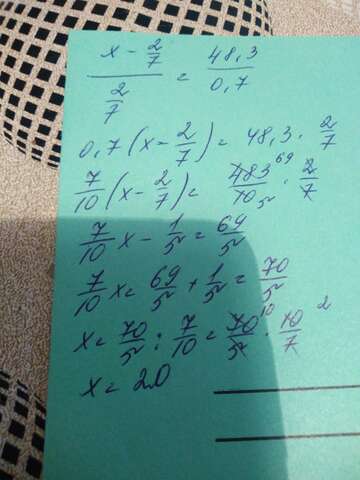 (x - 2/7) / (2/7) = 48,3/0,7
0,7(x - 2/7) = 48,3 · 2/7
7/10(x - 2/7) = 483/10 · 2/7 69 5
7/10 x - 1/5 = 69/5
7/10 x = 69/5 + 1/5 = 70/5
x = 70/5 : 7/10 = 70/5 · 10/7 10 2
x = 20